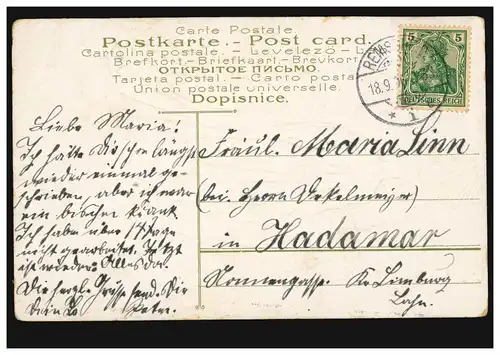 Carte Postale
Postkarte. - Post card.
Cartolina postale - Levelező - L
Brefkort. - Briefkaart. - Brevkort
ОТКРЫТОЕ ПИСЬМО.
Tarjeta postal. - Carto postal
Union postale universelle.
Dopisnice.
5 5
DEUTSCHES REICH
18.9.
* 1
Liebe Maria!
Ich hätte Dir schon längst
wieder einmal ge-
schrieben, aber ich war
ein bischen krank
Ich habe über 17 Tage
nicht gearbeitet. Jetzt
ist wieder Alles da.
Die herzl. Grüsse send. Dir
Dein
Peter.
Fräul. Maria Linn
(bei Herrn
in Hadamar
Nonnengasse. Kr. Limburg
Lahn.